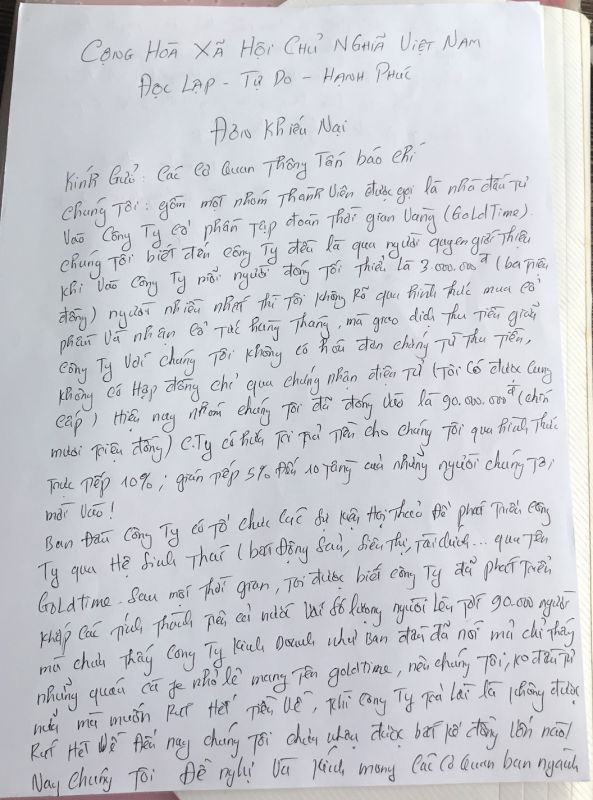 CỘNG HÒA XÃ HỘI CHỦ NGHĨA VIỆT NAM
ĐỘC LẬP - TỰ DO - HẠNH PHÚC
ĐƠN KHIẾU NẠI
Kính Gửi: Các cơ quan Thông Tấn báo chí
Chúng Tôi: gồm một nhóm Thành Viên được gọi là nhà đầu tư
Vào Công Ty cổ phần Tập đoàn Thời gian Vàng (GoldTime).
Chúng Tôi biết đến Công Ty đều là qua người quyen giới Thiệu
khi Vào Công Ty mỗi người đóng Tối Thiểu là 3.000.000đ (ba Triệu
đồng) người nhiều nhất thì Tôi không Rõ qua hình Thức mua cổ
phần Và nhận cổ Tức hàng Tháng, mà giao dịch thu Tiền giữa
Công Ty Với chúng Tôi không có hóa đơn chứng Từ Thu Tiền,
không có Hợp đồng chỉ qua chứng nhận điện Tử (Tôi Có được Cung
Cấp) Hiện nay nhóm chúng Tôi đã đóng Vào là 90.000.000đ (chín
mươi Triệu đồng) C.Ty có hứa Trả Tiền cho chúng Tôi qua hình Thức
Trực Tiếp 10%; gián Tiếp 5% Đến 10 Tầng của những người chúng Tôi
mời Vào!
Ban Đầu Công Ty có Tổ chức các Sự kiện Hội Thảo Để phát Triển Công
Ty qua Hệ Sinh Thái (bất Động Sản, Siêu Thị, Tài chính... qua Tên
GoldTime. Sau một Thời gian, Tôi được biết công Ty đã phát Triển
khắp các Tỉnh Thành Trên cả nước Với Số lượng người lên Tới 90.000 người
mà chưa Thấy Công Ty Kinh Doanh như Ban đầu đã nói mà chỉ Thấy
những quán Cà fe nhỏ lẻ mang Tên goldtime, nên chúng Tôi, ko đầu Tư
nữa mà muốn Rút Hết Tiền Về, Thì Công Ty Trả lời là không được
Rút Hết Về Đến nay chúng Tôi chưa nhận được bất kỳ đồng Vốn nào!
Nay Chúng Tôi Đề nghị Và Kính mong Các Cơ Quan ban ngành